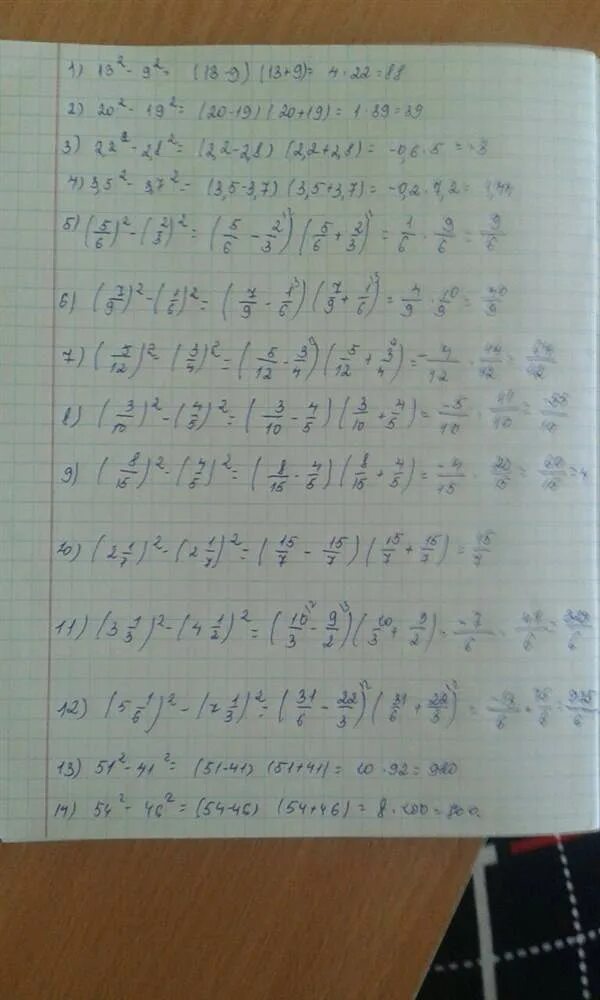 1) 13² - 9² = (13-9) (13+9) = 4·22 = 88
2) 20² - 19² = (20-19) (20+19) = 1·39 = 39
3) 2,2² - 2,8² = (2,2-2,8) (2,2+2,8) = -0,6·5 = -3
4) 3,5² - 3,7² = (3,5-3,7) (3,5+3,7) = -0,2·7,2 =
5) (5/6)² - (2/3)² = (5/6 - 2/3) (5/6 + 2/3) = 1/6 · 9/6 = 9/6
6) (7/9)² - (1/6)² = (7/9 - 1/6) (7/9 + 1/6) = 4/9 · 10/9 = 40/9
7) (5/12)² - (3/4)² = (5/12 - 3/4) (5/12 + 3/4) = -4/12 ·
8) (3/10)² - (4/5)² = (3/10 - 4/5) (3/10 + 4/5) = -5/10 · 11/10 =
9) (8/15)² - (4/5)² = (8/15 - 4/5) (8/15 + 4/5) = -4/15 · 20/15 =
10) (2 1/7)² - (2 1/7)² = (15/7 - 15/7) (15/7 + 15/7) = 15/7
11) (3 1/3)² - (4 1/2)² = (10/3 - 9/2) (10/3 + 9/2) = -7/6 ·
12) (5 1/6)² - (7 1/3)² = (31/6 - 22/3) (31/6 + 22/3) =
13) 51² - 41² = (51-41) (51+41) = 10·92 = 920
14) 54² - 46² = (54-46) (54+46) = 8·100 = 800